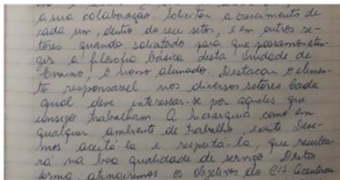 a sua colaboração. Solicitar o crescimento de
cada um, dentro do seu setor, e em outros se-
tores quando solicitado para que possamos atin-
gir a filosofia básica desta Unidade de
Ensino, o nosso alunado. Destacou o elemen-
to responsável nos diversos setores cada
qual deve interessar-se por aqueles que
consigo trabalham. A hierarquia como em
qualquer ambiente de trabalho, existe. Deve-
mos aceitá-la e respeitá-la, que resulta-
rá na boa qualidade de serviço. Desta
forma atingiremos os objetivos do